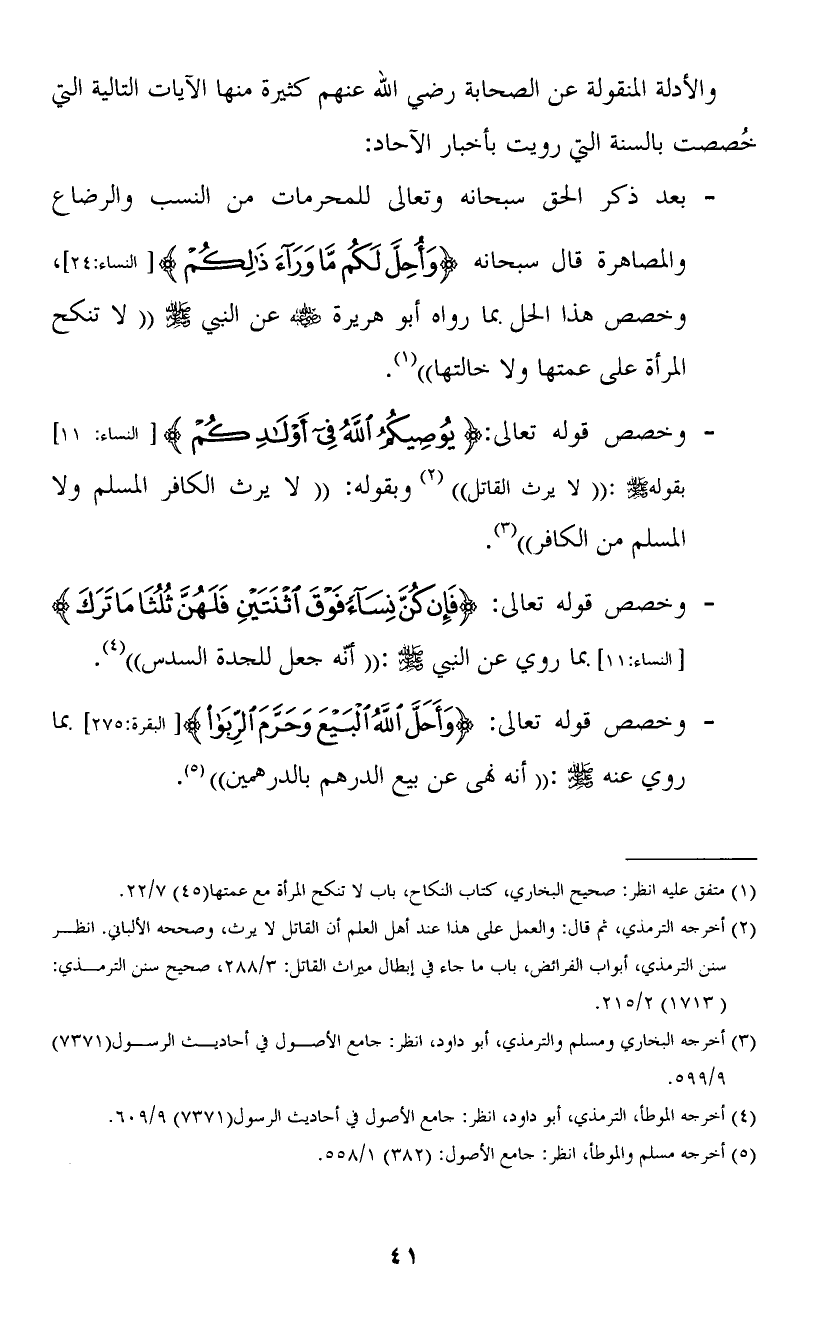 والأدلة المنقولة عن الصحابة رضي الله عنهم كثيرة منها الآيات التالية التي
خُصصت بالسنة التي رويت بأخبار الآحاد:
- بعد ذكر الحق سبحانه وتعالى للمحرمات من النسب والرضاع
والمصاهرة قال سبحانه ﴿وَأُحِلَّ لَكُم مَّا وَرَآءَ ذَٰلِكُمْ﴾ [ النساء:٢٤]،
وخصص هذا الحل بما رواه أبو هريرة ﷜ عن النبي ﷺ (( لا تنكح
المرأة على عمتها ولا خالتها))(١).
- وخصص قوله تعالى:﴿ يُوصِيكُمُ ٱللَّهُ فِىٓ أَوْلَٰدِكُمْ ﴾ [ النساء: ١١]
بقوله ﷺ :(( لا يرث القاتل)) (٢) وبقوله: (( لا يرث الكافر المسلم ولا
المسلم من الكافر))(٣).
- وخصص قوله تعالى: ﴿فَإِن كُنَّ نِسَآءً فَوْقَ ٱثْنَتَيْنِ فَلَهُنَّ ثُلُثَا مَا تَرَكَ ﴾
[ النساء:١١] بما روي عن النبي ﷺ :(( أنّه جعل للجدة السدس))(٤).
- وخصص قوله تعالى: ﴿وَأَحَلَّ ٱللَّهُ ٱلْبَيْعَ وَحَرَّمَ ٱلرِّبَوٰا۟ ﴾[ البقرة:٢٧٥] بما
روي عنه ﷺ :(( أنه نهى عن بيع الدرهم بالدرهمين)) (٥).
(١) متفق عليه انظر: صحيح البخاري، كتاب النكاح، باب لا تنكح المرأة مع عمتها(٤٥) ٢٢/٧.
(٢) أخرجه الترمذي، ثم قال: والعمل على هذا عند أهل العلم أن القاتل لا يرث، وصححه الألباني. انظــر
سنن الترمذي، أبواب الفرائض، باب ما جاء في إبطال ميراث القاتل: ٢٨٨/٣، صحيح سنن الترمــذي:
( ١٧١٣) ٢١٥/٢.
(٣) أخرجه البخاري ومسلم والترمذي، أبو داود، انظر: جامع الأصــول في أحاديــث الرســول(٧٣٧١)
٥٩٩/٩.
(٤) أخرجه الموطأ، الترمذي، أبو داود، انظر: جامع الأصول في أحاديث الرسول(٧٣٧١) ٦٠٩/٩.
(٥) أخرجه مسلم والموطأ، انظر: جامع الأصول: (٣٨٢) ٥٥٨/١.
٤١